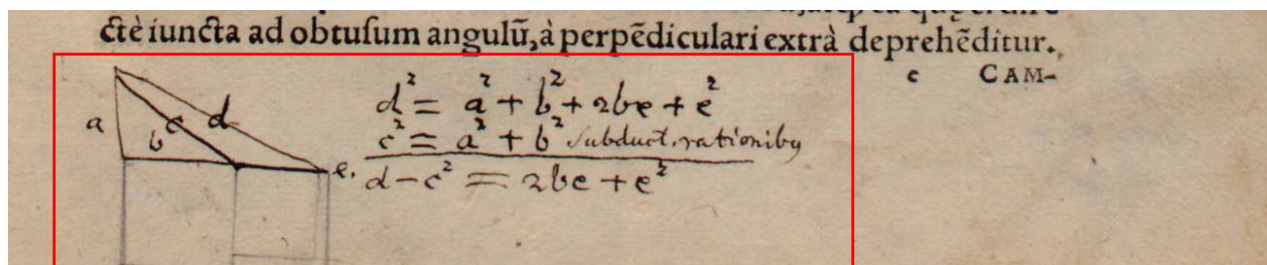 ctè iuncta ad obtuſum angulū, à perpēdiculari extrà deprehēditur.
c CAM-
a b c d e.
d² = a² + b² + 2be + e²
c² = a² + b² subduct. rationibꝰ
d - c² = 2be + e²